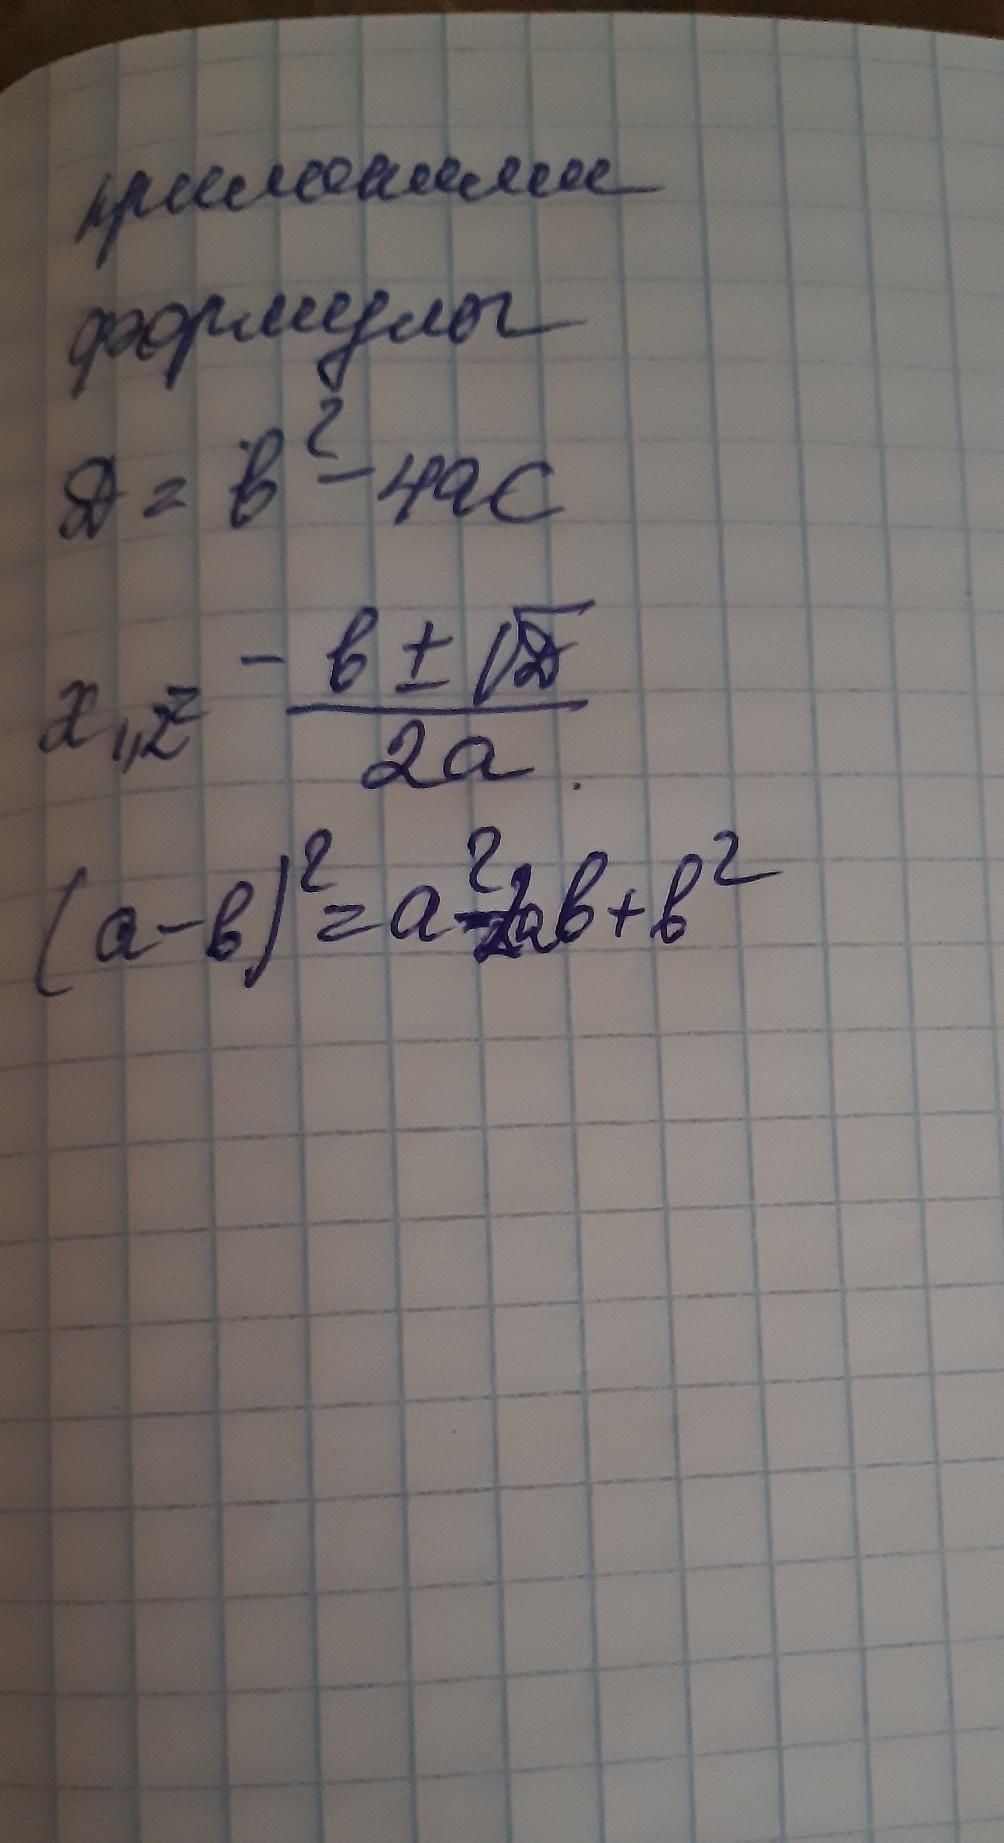 применили
формулы
D = b² - 4ac
x₁,₂ = - b ± √D / 2a
(a-b)² = a² - 2ab + b²